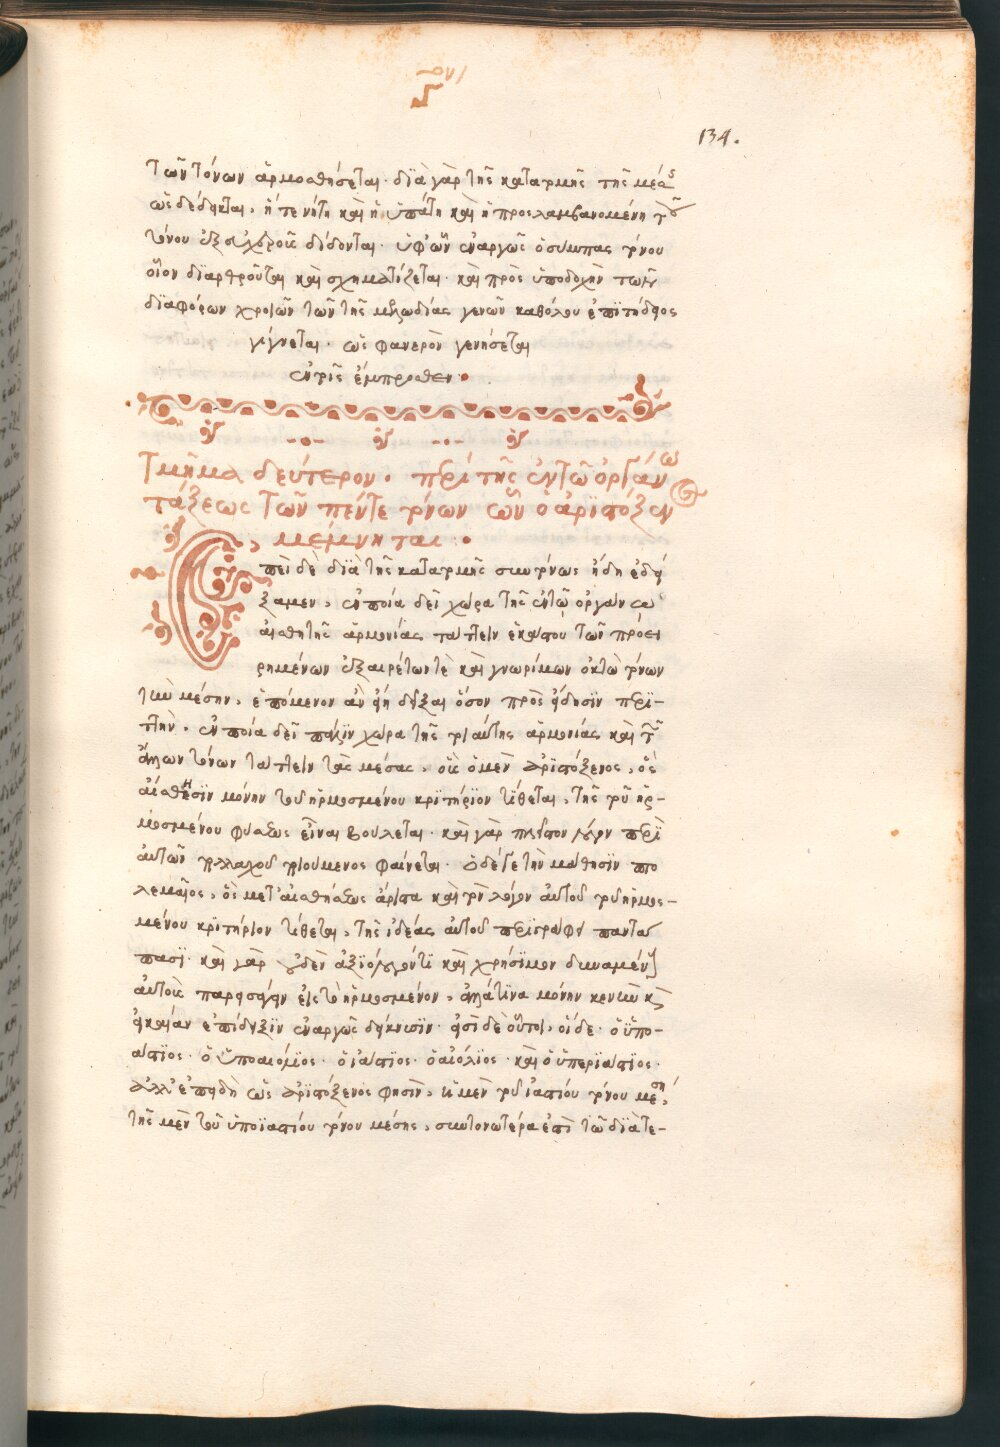 134.
τῶν τόνων ἁρμοσθήσεται· διὰ γὰρ τῆς κατατομῆς τῆς μέσης
ὡς δέδεικται, ἥ τε νήτη καὶ ἡ ὑπάτη καὶ ἡ προσλαμβανομένη τοῦ
τόνου δίδονται· ὑφ' ὧν ἐναργῶς ὁ σύμπας τόνου
οἷον διαρθροῦται καὶ σχηματίζεται· καὶ πρὸς ὑποδοχὴν τῶν
διαφόρων χροιῶν τῶν τῆς μελωδίας γενῶν καθόλου ἐπιτήδειος
γίγνεται· ὡς φανερὸν γενήσεται
ἐν τοῖς ἔμπροσθεν·
τμῆμα δεύτερον· περὶ τῆς ἐν τῷ ὀργάνῳ
τάξεως τῶν πέντε τόνων ὧν ὁ ἀριστόξενος
μέμνηται:·
Ἐπεὶ δὲ διὰ τῆς κατατομῆς τόνως ἤδη ἐδεί
ξαμεν, ἐν ποία δεῖ χώρα τῆς ἐν τῷ ὀργάνῳ
αἰσθητῆς ἁρμονίας τάττειν ἑκάστου τῶν προει
ρημένων ἐξαιρέτων τὲ καὶ γνωρίμων ὀκτὼ τόνων
τὴν μέσην, ἑπόμενον ἂν εἴη δεῖξαι ὅσον πρὸς εἴδησιν περι-
ττὴν· ἐν ποία δεῖ πάλιν χώρα τῆς τοιαύτης ἁρμονίας καὶ τῶν
ἄλλων τόνων τάττειν τὰς μέσας, οἷς ὁ μὲν ἀριστόξενος, ὃς
αἴσθησιν μόνην τοῦ ἡρμοσμένου κριτήριον τίθεται, τῆς τοῦ ἡρ-
μοσμένου φύσεως εἶναι βούλεται· καὶ γὰρ λόγον περὶ
αὐτῶν ἀλλαχοῦ ποιούμενος φαίνεται· ὁ δέ γε τὴν μάθησιν πτο
λεμαῖος, ὃς μετ' αἰσθήσεως ἄριστα καὶ τὸν λόγον αὐτοῦ τοῦ ἡρμοσ-
μένου κριτήριον τίθεται, τῆς ἰδέας αὐτοῦ περιγράφει παντά
πασι· καὶ γὰρ οὐδὲν ἀξιόλογόν τι καὶ χρήσιμον δυναμένους
αὐτοὺς παρεισάγειν εἰς τὸ ἡρμοσμένον, ἀλλά τινα μόνην κενὴν καὶ
εἰκαίαν ἐπίδειξιν ἐναργῶς δείκνυσιν· εἰσὶ δὲ οὗτοι, οἵδε· ὁ ὑπο-
άστιος· ὁ ὑποαιόλιος· ὁ ἰάστιος· ὁ αἰόλιος· καὶ ὁ ὑπεριάστιος·
ἀλλ' ἐπειδὴ ὡς ἀριστόξενός φησιν, ἡ μὲν τοῦ ἰαστίου τόνου μέση,
τῆς μὲν τοῦ ὑποϊαστίου τόνου μέσης, συντονωτέρα ἐστὶ τῷ διὰ τε-